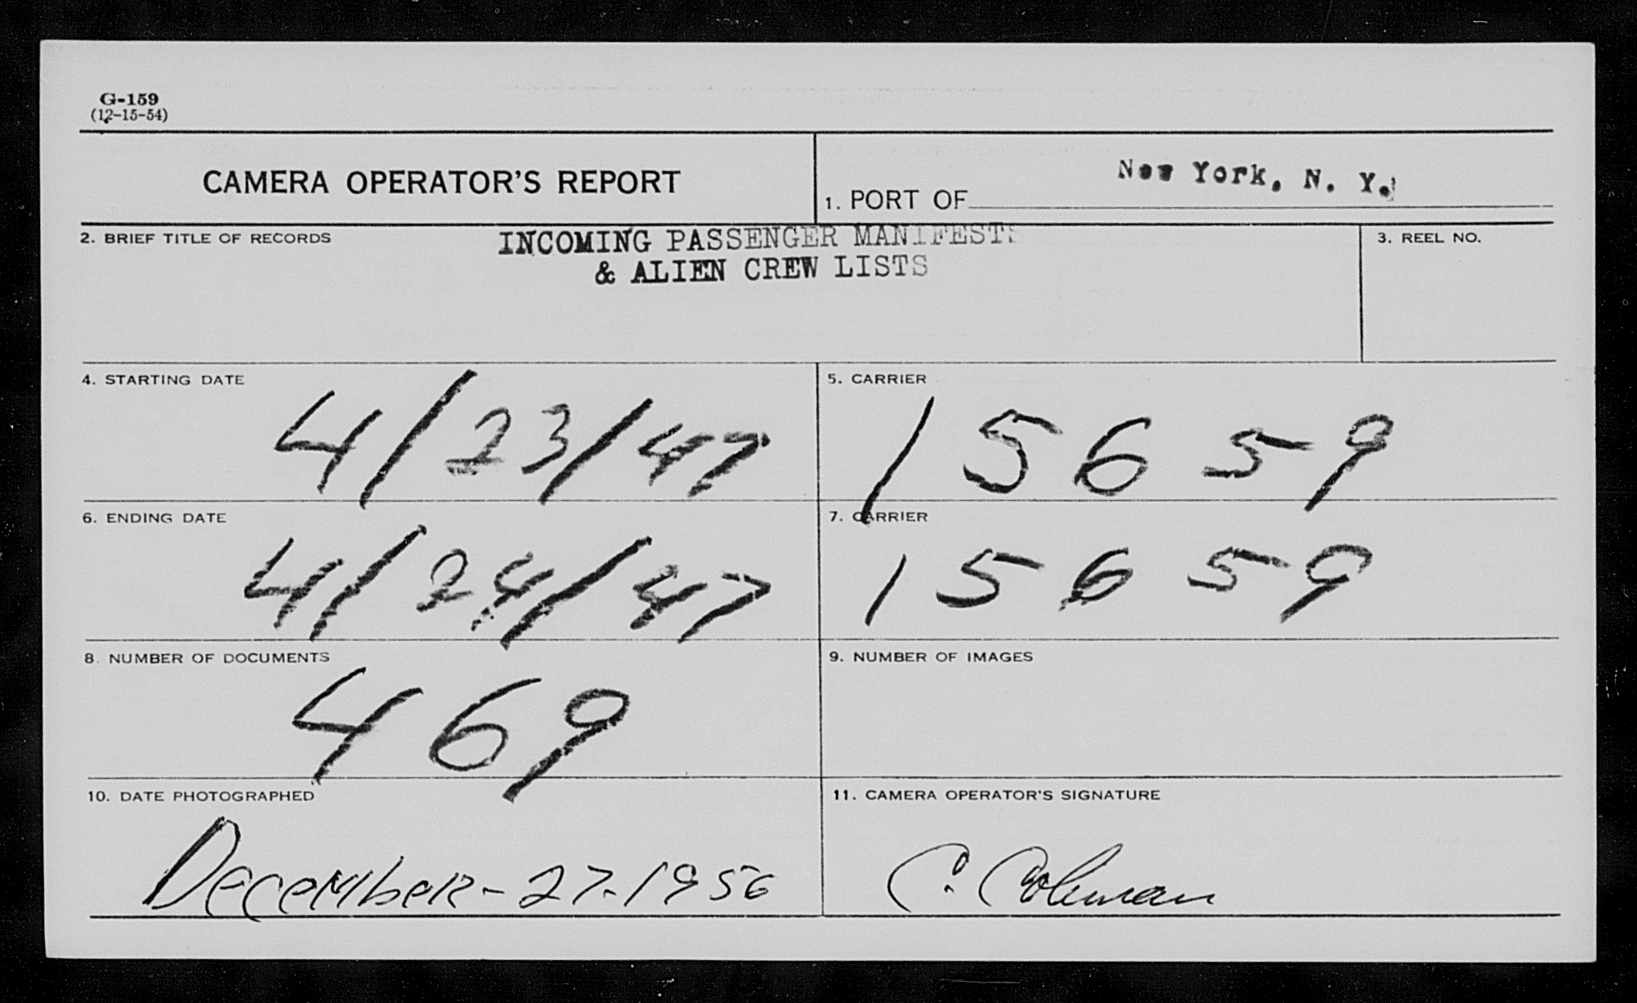 G-159
(12-15-54)
CAMERA OPERATOR'S REPORT
1. PORT OF New York, N. Y.
2. BRIEF TITLE OF RECORDS
INCOMING PASSENGER MANIFESTS
& ALIEN CREW LISTS
3. REEL NO.
4. STARTING DATE
4/23/47
5. CARRIER
15659
6. ENDING DATE
4/24/47
7. CARRIER
15659
8. NUMBER OF DOCUMENTS
469
9. NUMBER OF IMAGES
10. DATE PHOTOGRAPHED
December-27-1956
11. CAMERA OPERATOR'S SIGNATURE
C. Coleman